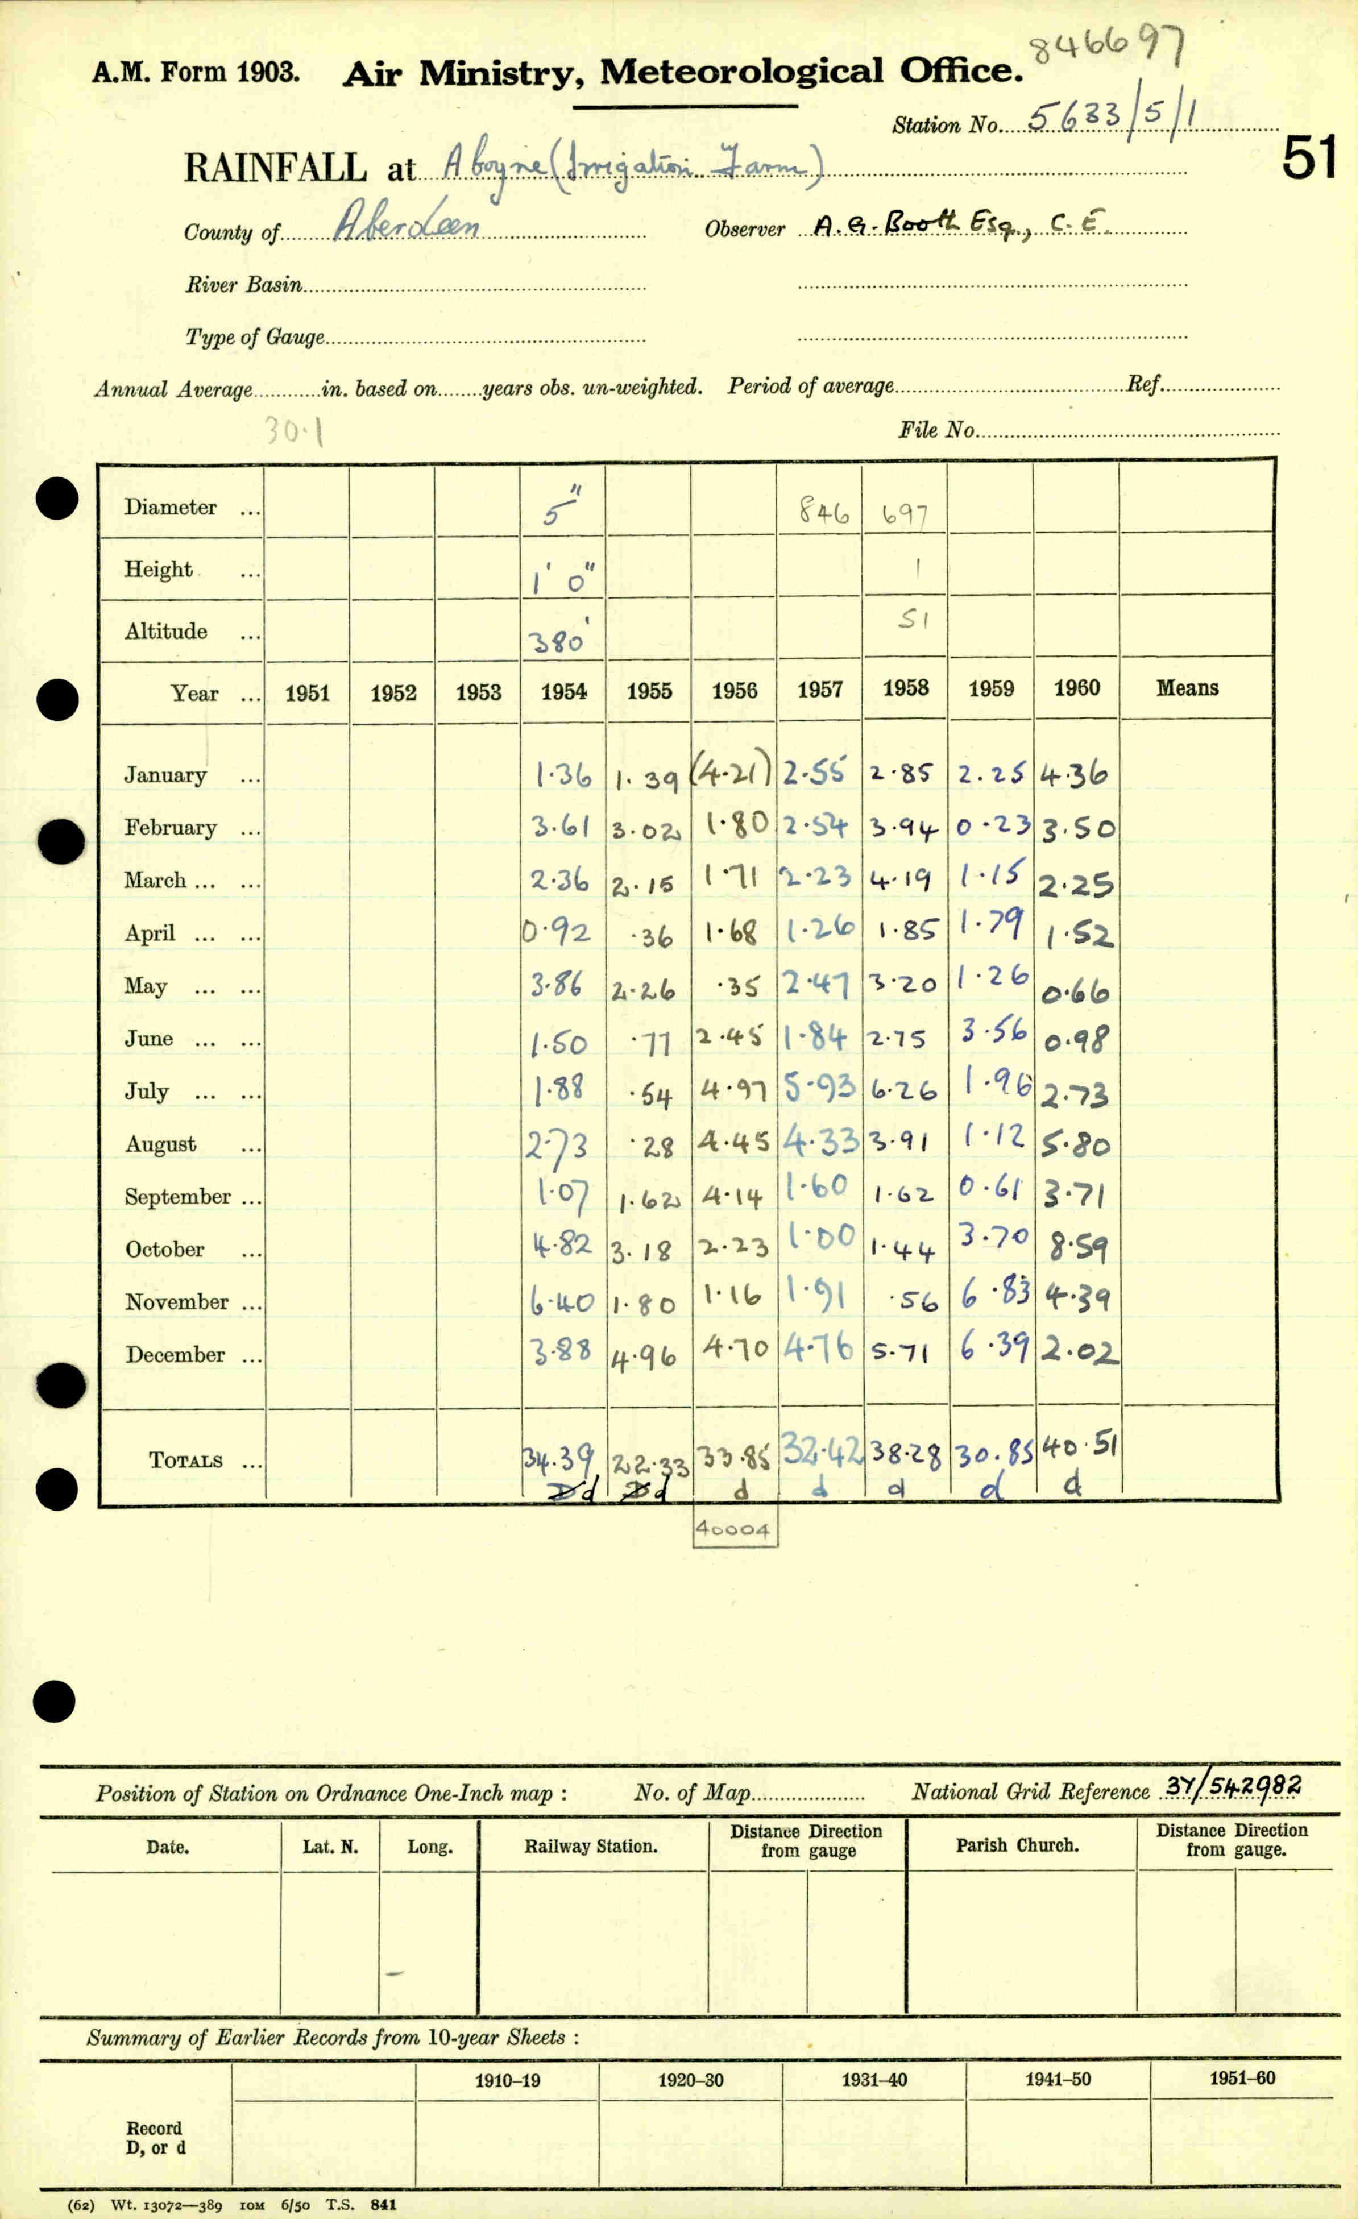 846697
A.M. Form 1903. Air Ministry, Meteorological Office.
Station No. 5633/5/1
51
RAINFALL at Aboyne (Irrigation Farm)
County of Aberdeen Observer A. G. Booth Esq., C. E.
River Basin
Type of Gauge
Annual Average in. based on years obs. un-weighted. Period of average Ref.
30.1
File No.
Diameter ... 5" 846 697
Height ... 1' 0" 1
Altitude ... 380' 51
Year ... 1951 1952 1953 1954 1955 1956 1957 1958 1959 1960 Means
January ... 1.36 1.39 (4.21) 2.55 2.85 2.25 4.36
February ... 3.61 3.02 1.80 2.54 3.94 0.23 3.50
March ... ... 2.36 2.15 1.71 2.23 4.19 1.15 2.25
April ... ... 0.92 .36 1.68 1.26 1.85 1.79 1.52
May ... ... 3.86 2.26 .35 2.47 3.20 1.26 0.66
June ... ... 1.50 .77 2.45 1.84 2.75 3.56 0.98
July ... ... 1.88 .54 4.97 5.93 6.26 1.96 2.73
August ... 2.73 .28 4.45 4.33 3.91 1.12 5.80
September ... 1.07 1.62 4.14 1.60 1.62 0.61 3.71
October ... 4.82 3.18 2.23 1.00 1.44 3.70 8.59
November ... 6.40 1.80 1.16 1.91 .56 6.83 4.39
December ... 3.88 4.96 4.70 4.76 5.71 6.39 2.02
TOTALS ... 34.39 22.33 33.85 32.42 38.28 30.85 40.51
D d D d d d d d d
40004
Position of Station on Ordnance One-Inch map : No. of Map National Grid Reference 37/542982
Date. Lat. N. Long. Railway Station. Distance Direction from gauge Parish Church. Distance Direction from gauge.
Summary of Earlier Records from 10-year Sheets :
1910–19 1920–30 1931–40 1941–50 1951–60
Record
D, or d
(62) Wt. 13072—389 10M 6/50 T.S. 841